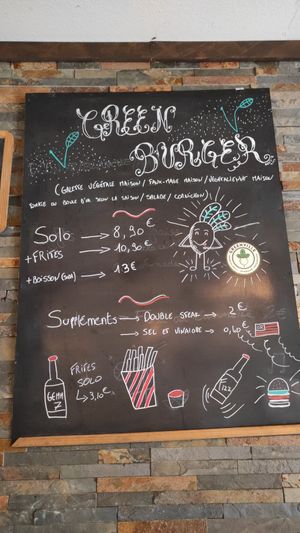 GREEN
BURGER
(GALETTE VÉGÉTALE MAISON / FAUX-MAGE MAISON / VÉGÉTALENAISE MAISON
OU BOULE D'OR SELON LA SAISON / SALADE / CORNICHON)
SOLO → 8,90 €
+ FRITES → 10,90 €
+ BOISSON (SOFT) → 13 €
SUPPLÉMENTS → DOUBLE STEAK 2 €
→ SEL ET VINAIGRE 0,40 €
FRITES
SOLO
↳ 3,10 €